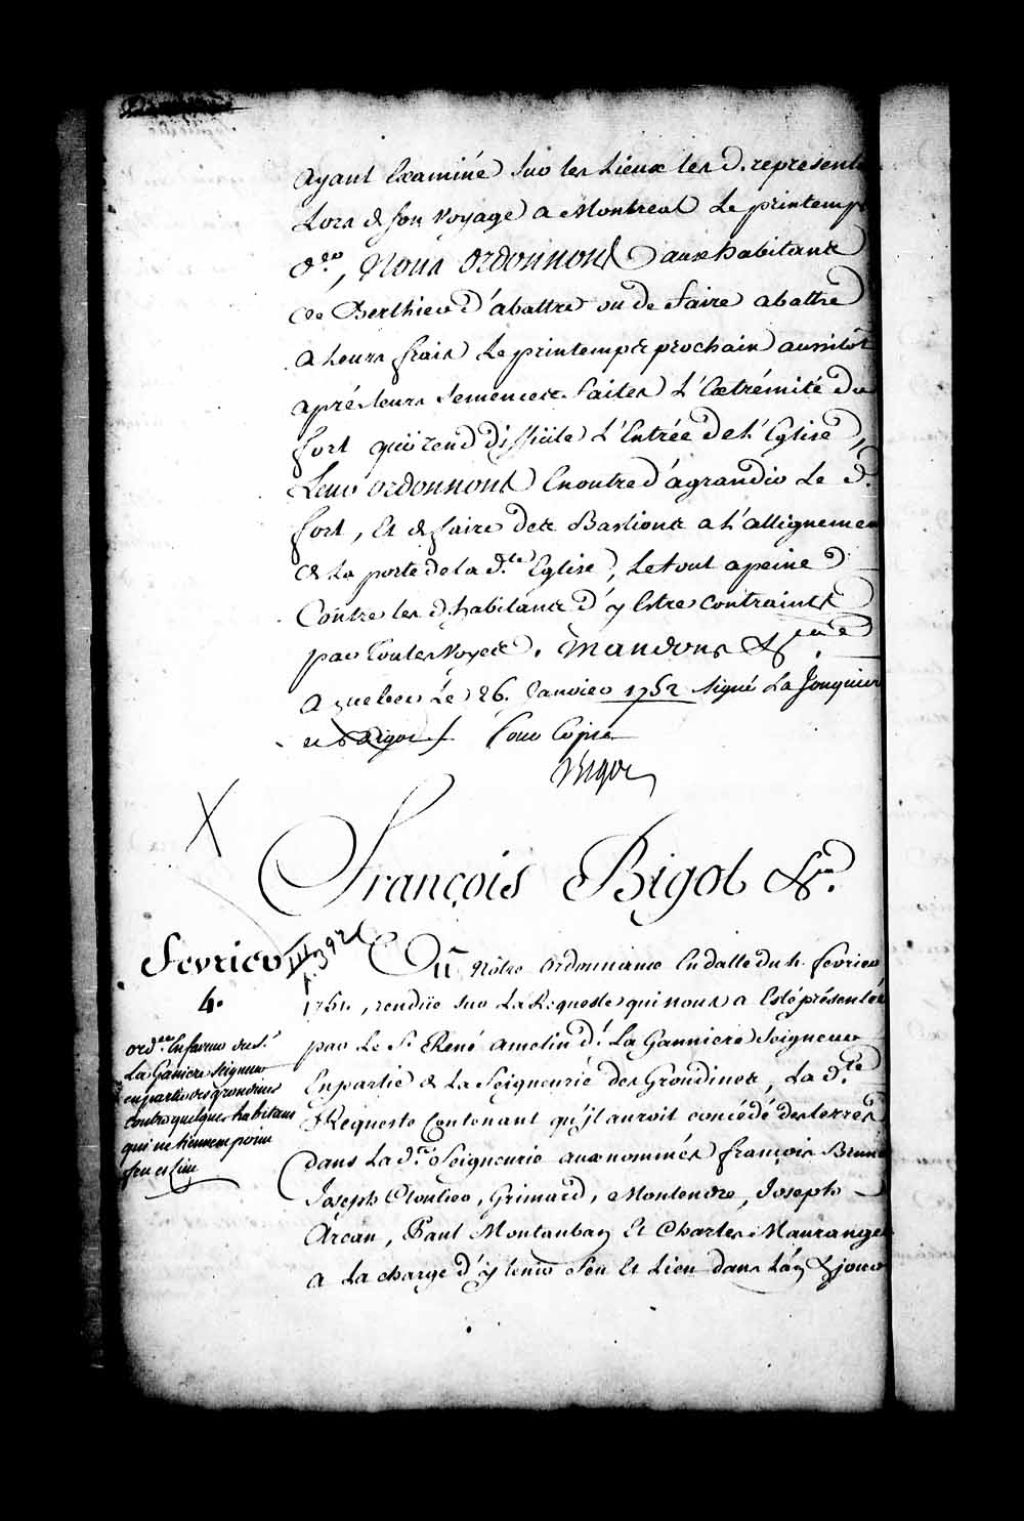 ayant Examiné sur les Lieux les d. represent
Lors de son voyage a Montreal Le printemps
d.er, Nous ordonnons aux habitants
de Berthier d'abattre ou de faire abattre
a Leurs frais Le printemps prochain aussitôt
aprés leurs semences faites L'Extrémité du
fort qui rend difficile L'Entrée de l'Eglise,
Leur ordonnons En outre d'agrandir Le d.
fort, Et de faire des Bastions a L'allignemen
de La porte de la d.te Eglise, Le tout a peine
Contre les d. habitants d'y Estre contraints
par toutes voyes. Mandons &.ca
a quebec Le 26. Janvier 1752 signé La Jonquiere
et Bigot / Pour Copie
Bigot
X
François Bigot &.ca
Fevrier
4.
III
p. 392
ord.ce En faveur du S.r
La Ganiere seigneur
en partie des grondines
contre quelques habitans
qui ne tiennent point
feu et Lieu
Vû Nôtre ordonnance En datte du 4. fevrier
1751, rendüe sur La Requeste qui nous a Esté présentée
par Le S.r René amelin d.t La Ganniere Seigneur
En partie de La Seigneurie des Grondines, La d.te
Requeste Contenant qu'il auroit concédé des terres
dans La d.te Seigneurie aux nommés françois Brun
Joseph Cloutier, Grimard, Montendre, Joseph
Arcan, Paul Montanban Et Charles Maurange
a La charge d'y tenir feu Et Lieu dans L'an & jour